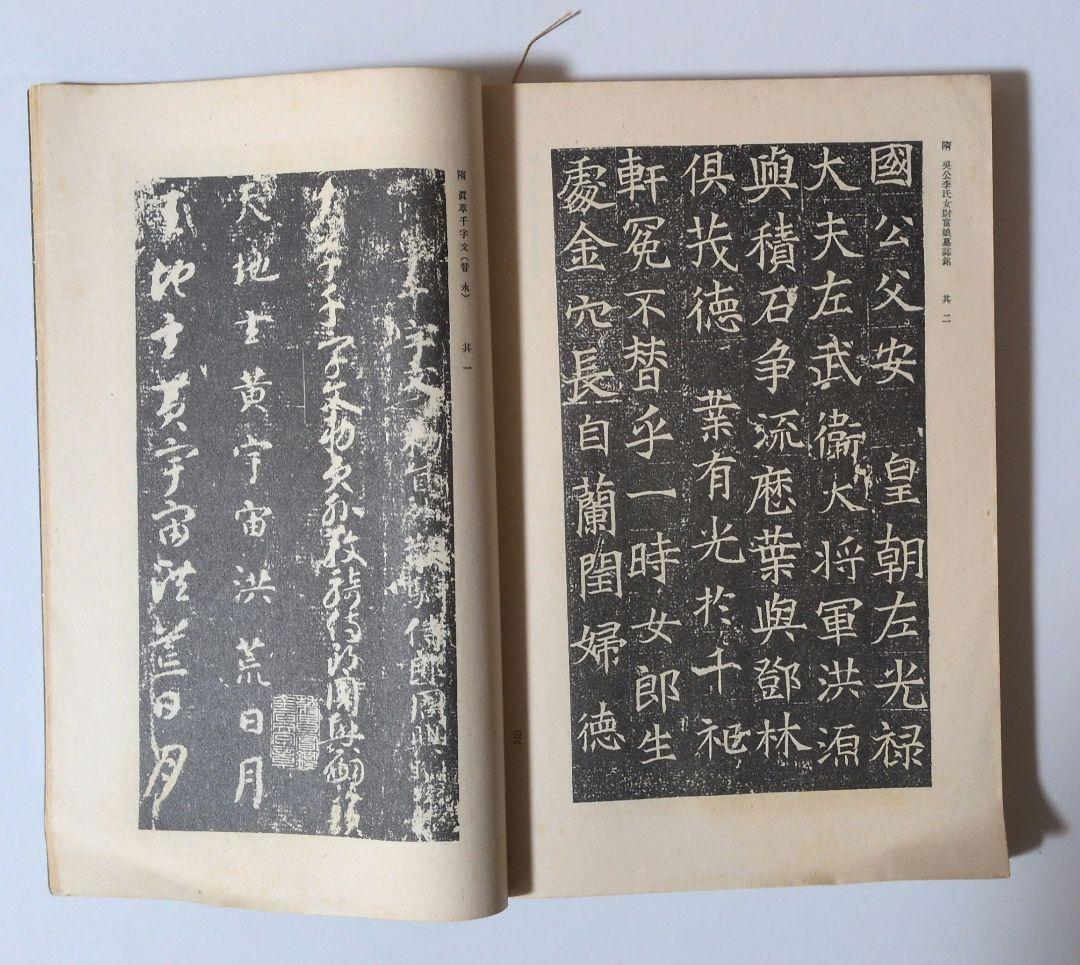 隋 吳公李氏女尉富娘墓誌銘 其二
國公父安 皇朝左光禄
大夫左武衛大将軍洪源
與積石争流厯葉與鄧林
俱茂德 業有光於千祀
軒冕不替乎一時女郎生
處金穴長自蘭閨婦德
隋 眞草千字文(智永) 其一
字文 侍郎周
千字文勅員外散騎侍郎周興嗣次韻
天地玄黄宇宙洪荒日月
天地玄黄宇宙洪荒日月